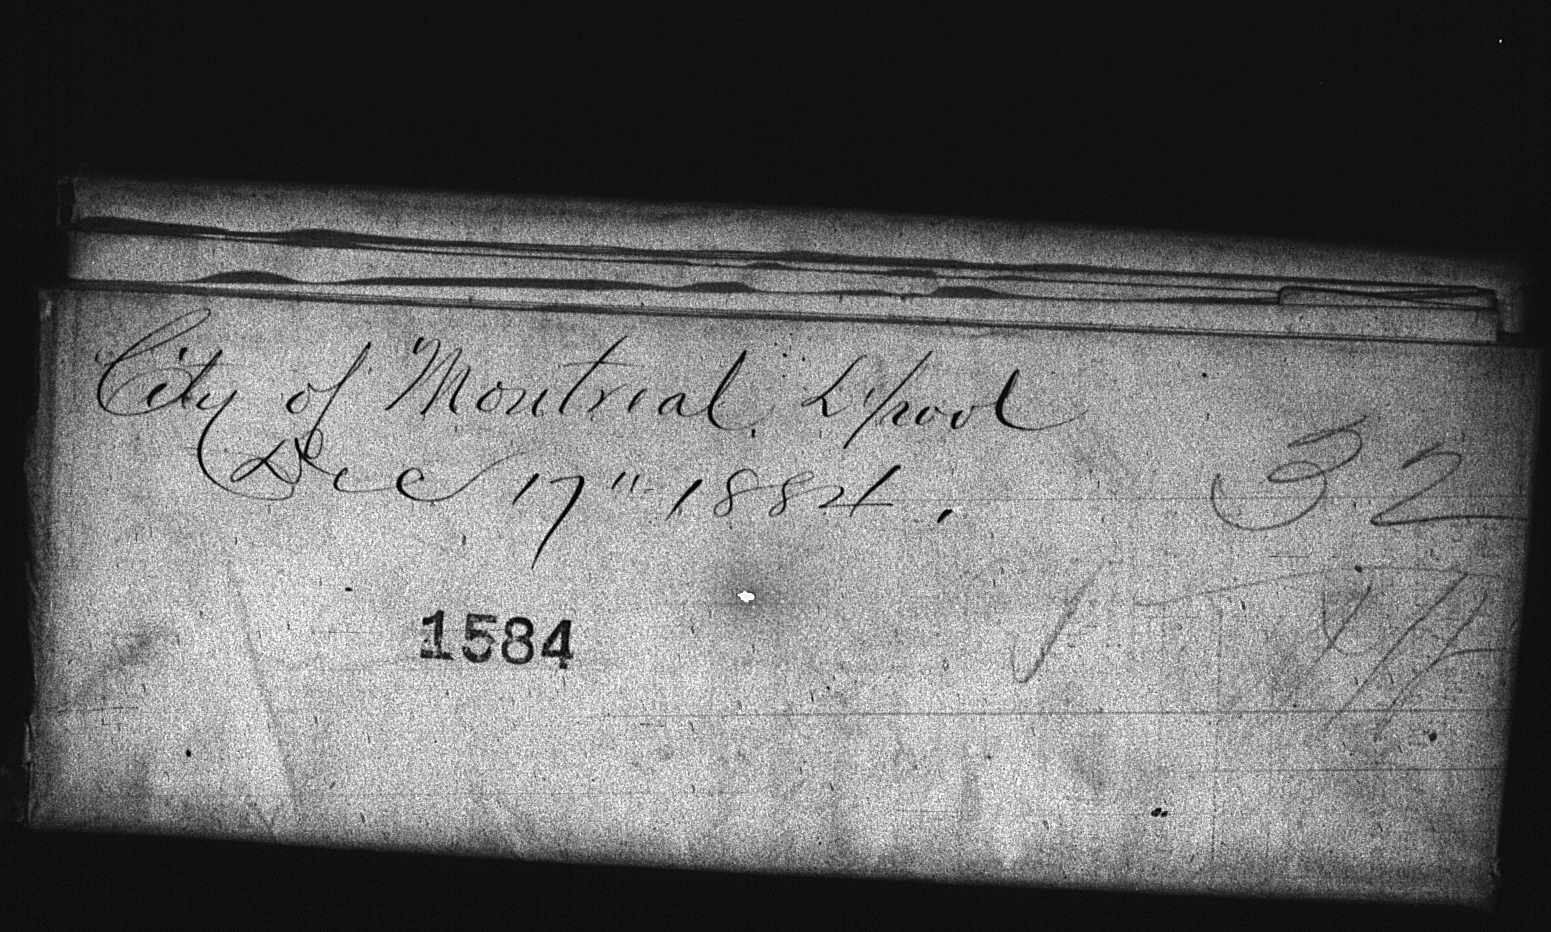 City of Montreal. L'pool
Dec 17" 1884.
32
1584